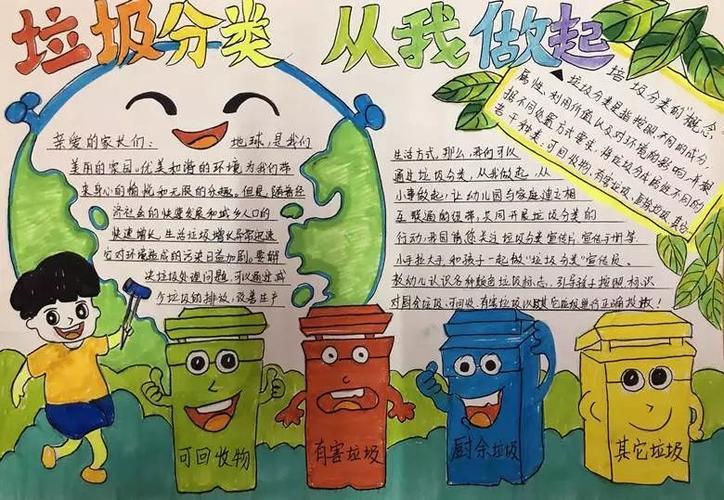 垃圾分类 从我做起
亲爱的家长们：
地球，是我们
美丽的家园。优美和谐的环境为我们带
来身心的愉悦和无限的乐趣。但是，随着经
济社会的快速发展和城乡人口的
快速增长，生活垃圾增长异常迅速
它对环境造成的污染日益加剧。要解
决垃圾处理问题，可以通过减
少垃圾的排放，改善生产
生活方式，那么，我们可以
通过垃圾分类，从我做起，从
小事做起，让幼儿园与家庭建立相
互联通的纽带，共同开展垃圾分类的
行动，我园请您关注垃圾分类宣传片、宣传手册等.
小手拉大手，和孩子一起做"垃圾分类"宣传员.
教幼儿认识各种颜色垃圾标志，引导孩子按照标识
对厨余垃圾、可回收、有害垃圾以及其它垃圾进行正确投放！
垃圾分类的"概念
垃圾分类是指按照不同的成分、
属性、利用价值以及对环境的影响，并根
据不同处置方式要求，将垃圾分成属性不同的
若干种类：可回收物，有害垃圾，厨余垃圾，其它
可回收物
有害垃圾
厨余垃圾
其它垃圾